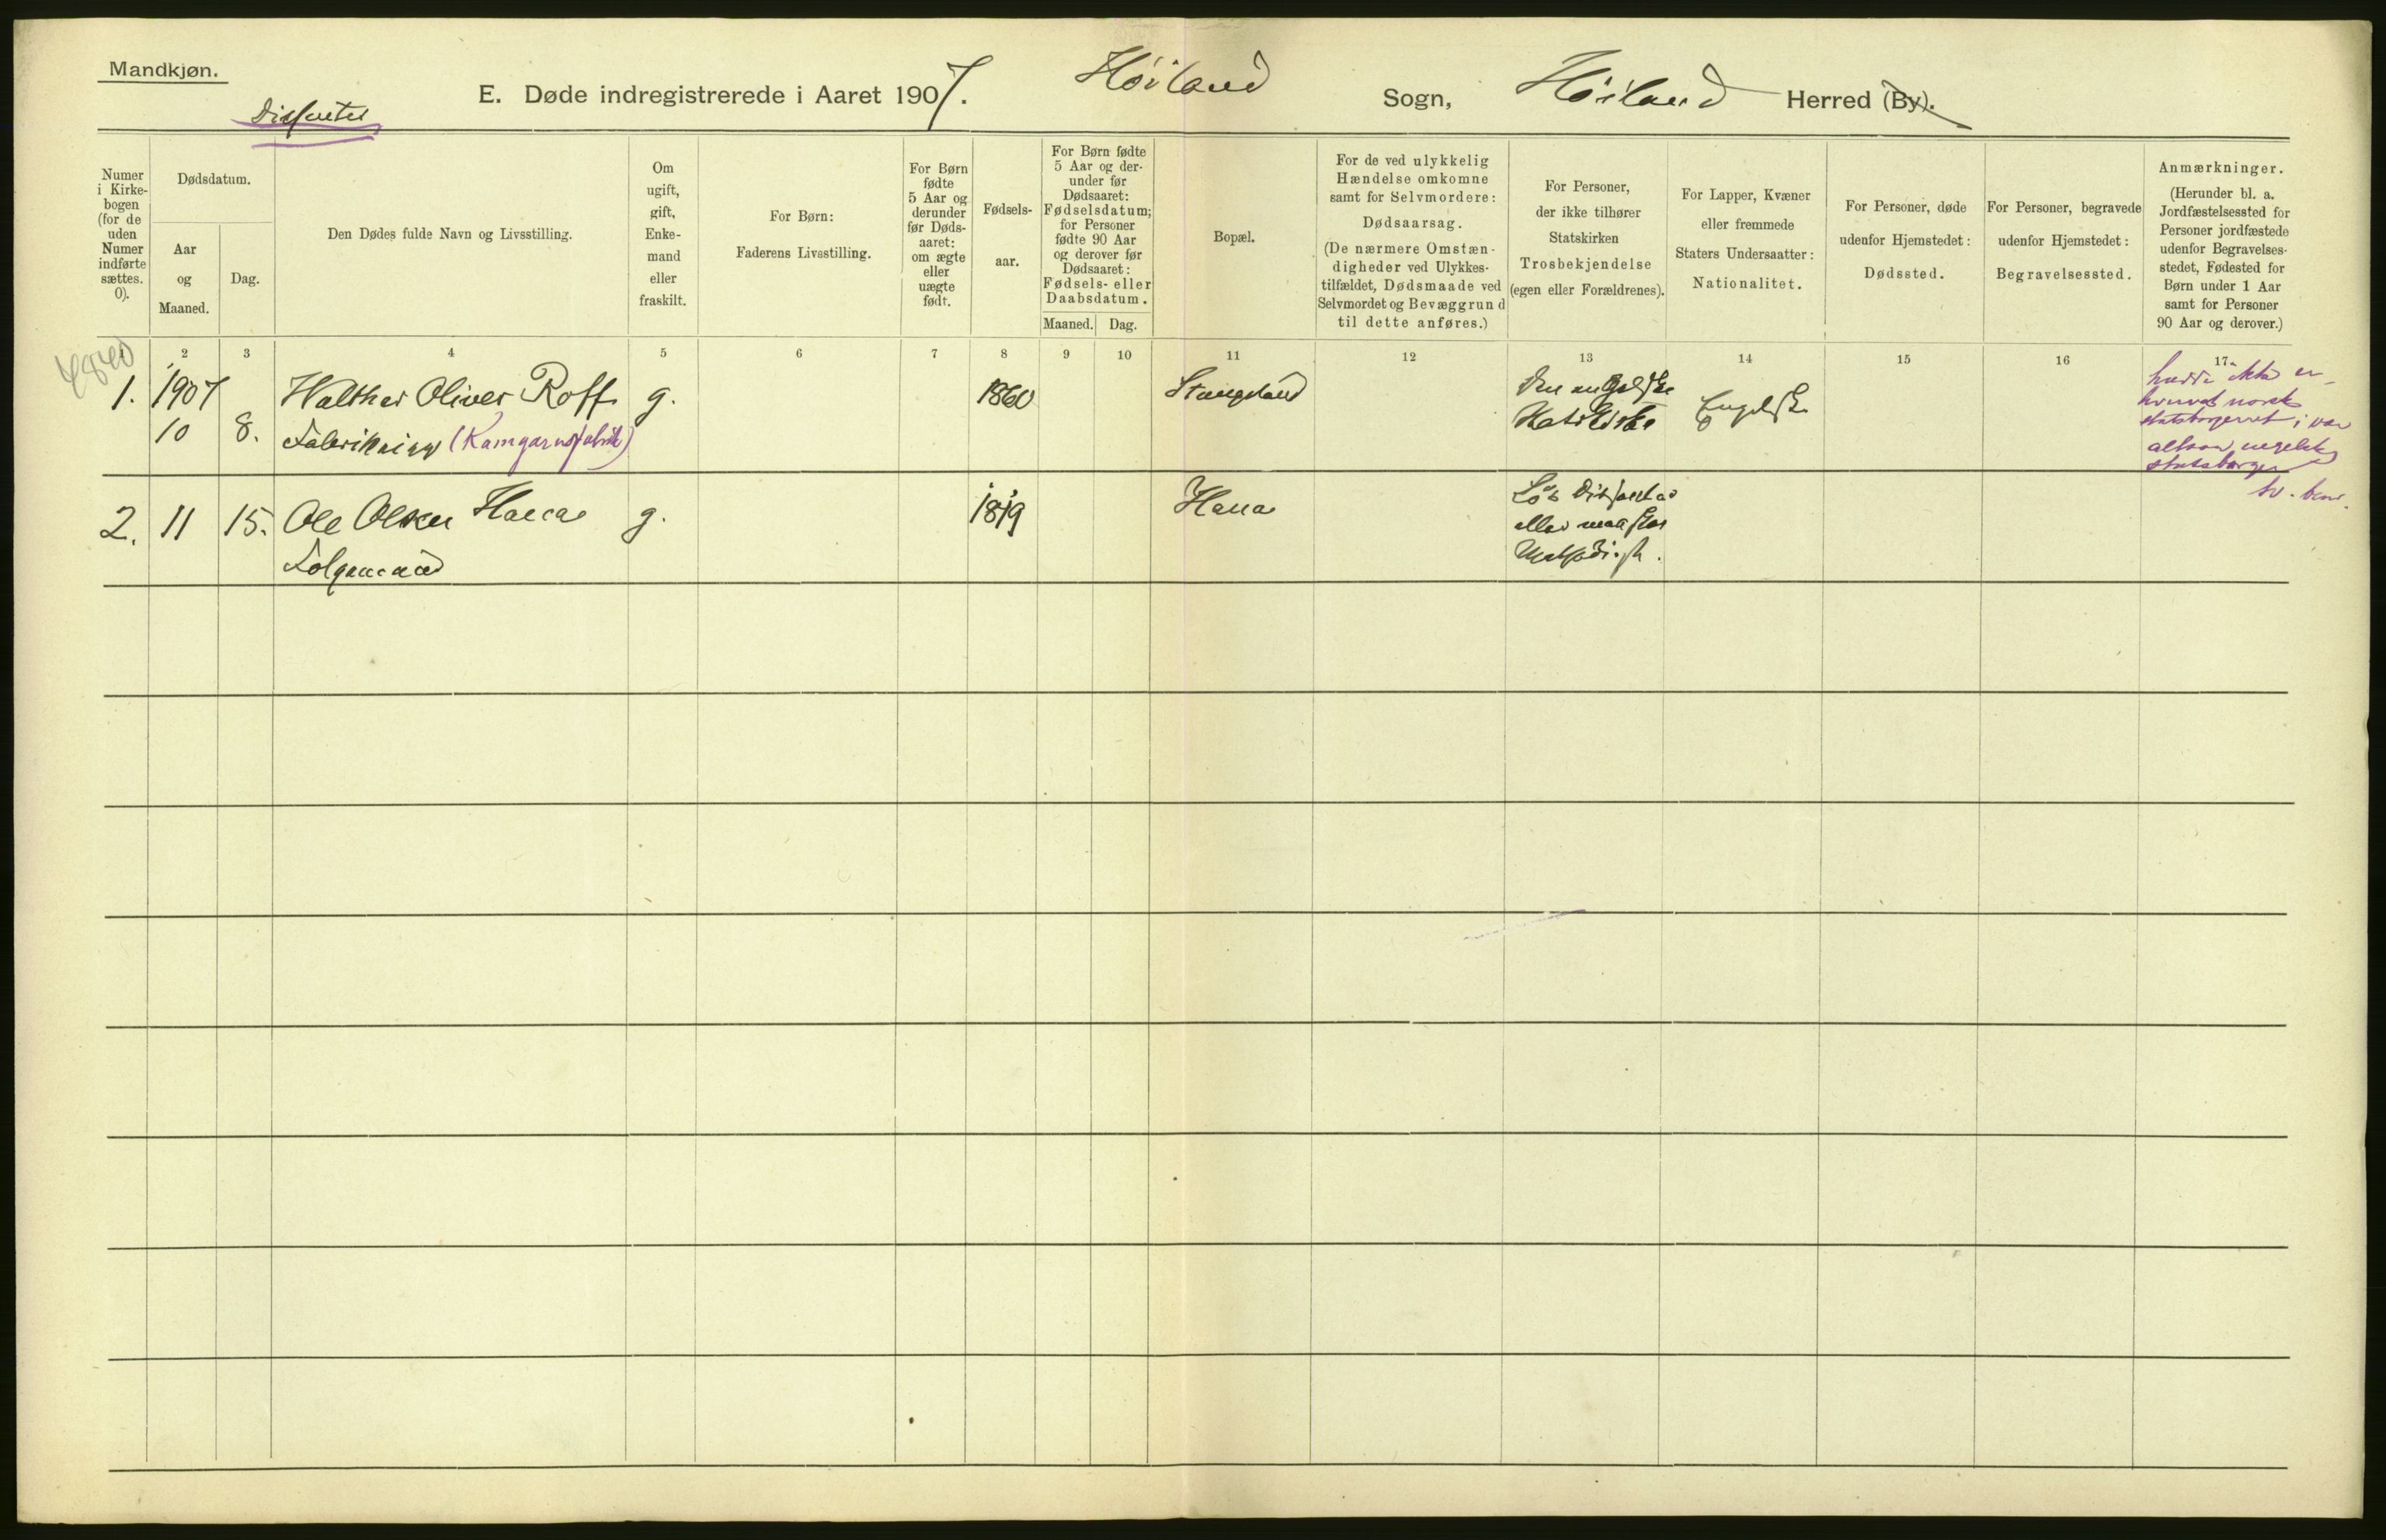 Mandkjøn.
Dissenter
E. Døde indregistrerede i Aaret 1907. Höiland Sogn, Höiland Herred (By).
Numer i Kirkebogen (for de uden Numer indførte sættes. 0).
Dødsdatum.
Aar og Maaned.
Dag.
Den Dødes fulde Navn og Livsstilling.
Om ugift, gift, Enke- mand eller fraskilt.
For Børn:
Faderens Livsstilling.
For Børn fødte 5 Aar og derunder før Døds- aaret: om ægte eller uægte født.
Fødsels- aar.
For Børn fødte 5 Aar og der- under før Dødsaaret: Fødselsdatum; for Personer fødte 90 Aar og derover før Dødsaaret: Fødsels- eller Daabsdatum.
Maaned. Dag.
Bopæl.
For de ved ulykkelig Hændelse omkomne samt for Selvmordere:
Dødsaarsag.
(De nærmere Omstæn- digheder ved Ulykkes- tilfældet, Dødsmaade ved Selvmordet og Bevæggrund til dette anføres.)
For Personer, der ikke tilhører Statskirken
Trosbekjendelse
(egen eller Forældrenes).
For Lapper, Kvæner eller fremmede Staters Undersaatter:
Nationalitet.
For Personer, døde udenfor Hjemstedet:
Dødssted.
For Personer, begravede udenfor Hjemstedet:
Begravelsessted.
Anmærkninger.
(Herunder bl. a. Jordfæstelsessted for Personer jordfæstede udenfor Begravelses- stedet, Fødested for Børn under 1 Aar samt for Personer 90 Aar og derover.)
2 3 4 5 6 7 8 9 10 11 12 13 14 15 16 17
4840
1. 1907 Walther Oliver Roff g. 1860 Stangeland Den engelske Engelsk
10 8. (Kamgarnsfabrik)
hadde ikke er-
hvervet norsk
statsborgerret; var
altsaa engelsk
statsborger
2. 11 15. Ole Olsen Hana g. 1819 Hana Lös Dissenter
Folgemand
eller maaske